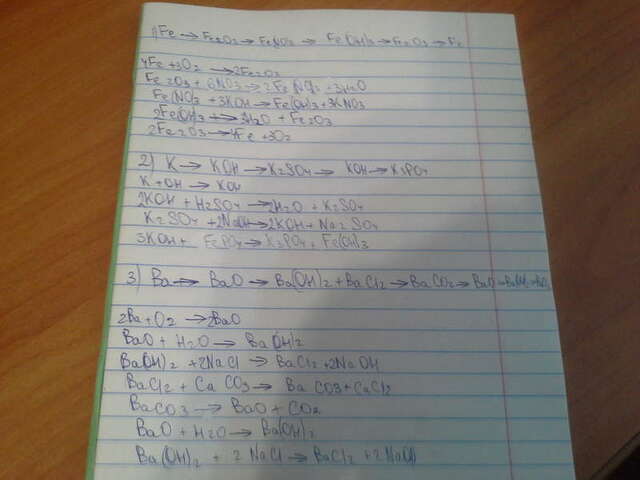 1) Fe → Fe2O3 → Fe(NO3)3 → Fe(OH)3 → Fe2O3 → Fe
4Fe + 3O2 → 2Fe2O3
Fe2O3 + 6NO3 → 2Fe(NO3)3 + 3H2O
Fe(NO3)3 + 3KOH → Fe(OH)3 + 3KNO3
2Fe(OH)3 → 3H2O + Fe2O3
2Fe2O3 → 4Fe + 3O2
2) K → KOH → K2SO4 → KOH → K3PO4
K + OH → KOH
2KOH + H2SO4 → 2H2O + K2SO4
K2SO4 + 2NaOH → 2KOH + Na2SO4
3KOH + FePO4 → K3PO4 + Fe(OH)3
3) Ba → BaO → Ba(OH)2 + BaCl2 → BaCO3 → BaO →
2Ba + O2 → 2BaO
BaO + H2O → Ba(OH)2
Ba(OH)2 + 2NaCl → BaCl2 + 2NaOH
BaCl2 + CaCO3 → BaCO3 + CaCl2
BaCO3 → BaO + CO2
BaO + H2O → Ba(OH)2
Ba(OH)2 + 2NaCl → BaCl2 + 2NaOH